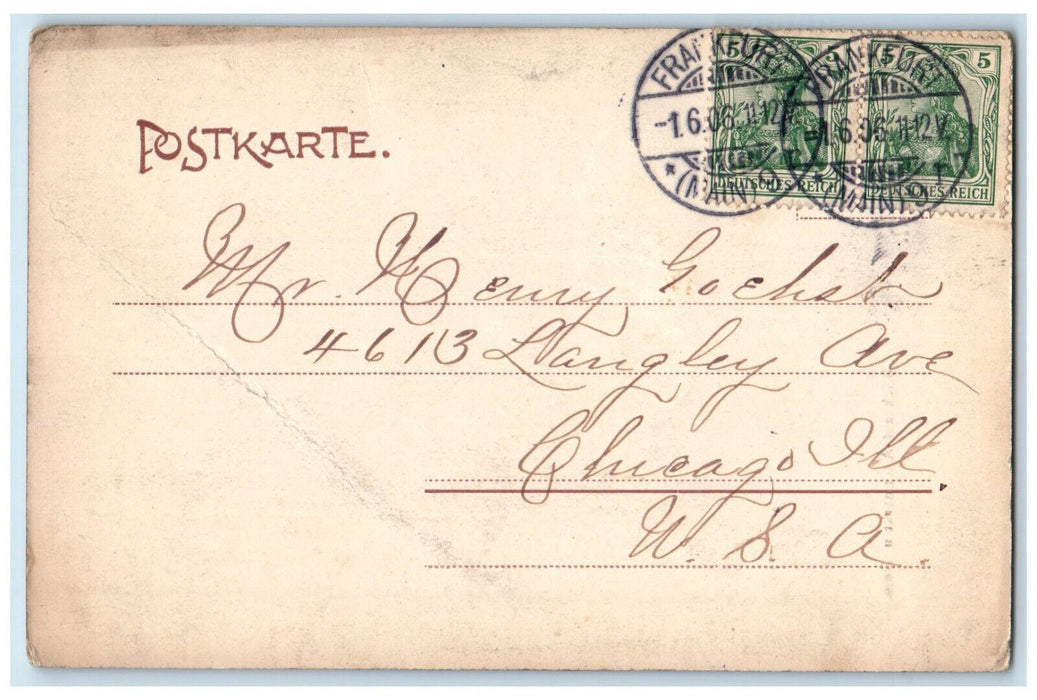 POSTKARTE.
FRANKFURT
-1.6.06.11-12V.
*(MAIN) 9
FRANKFURT
-1.6.06.11-12V.
(MAIN) 9
5 5
DEUTSCHES REICH DEUTSCHES REICH
Mr. Henry Goehst
4613 Langley Ave
Chicago Ill.
U. S. A.